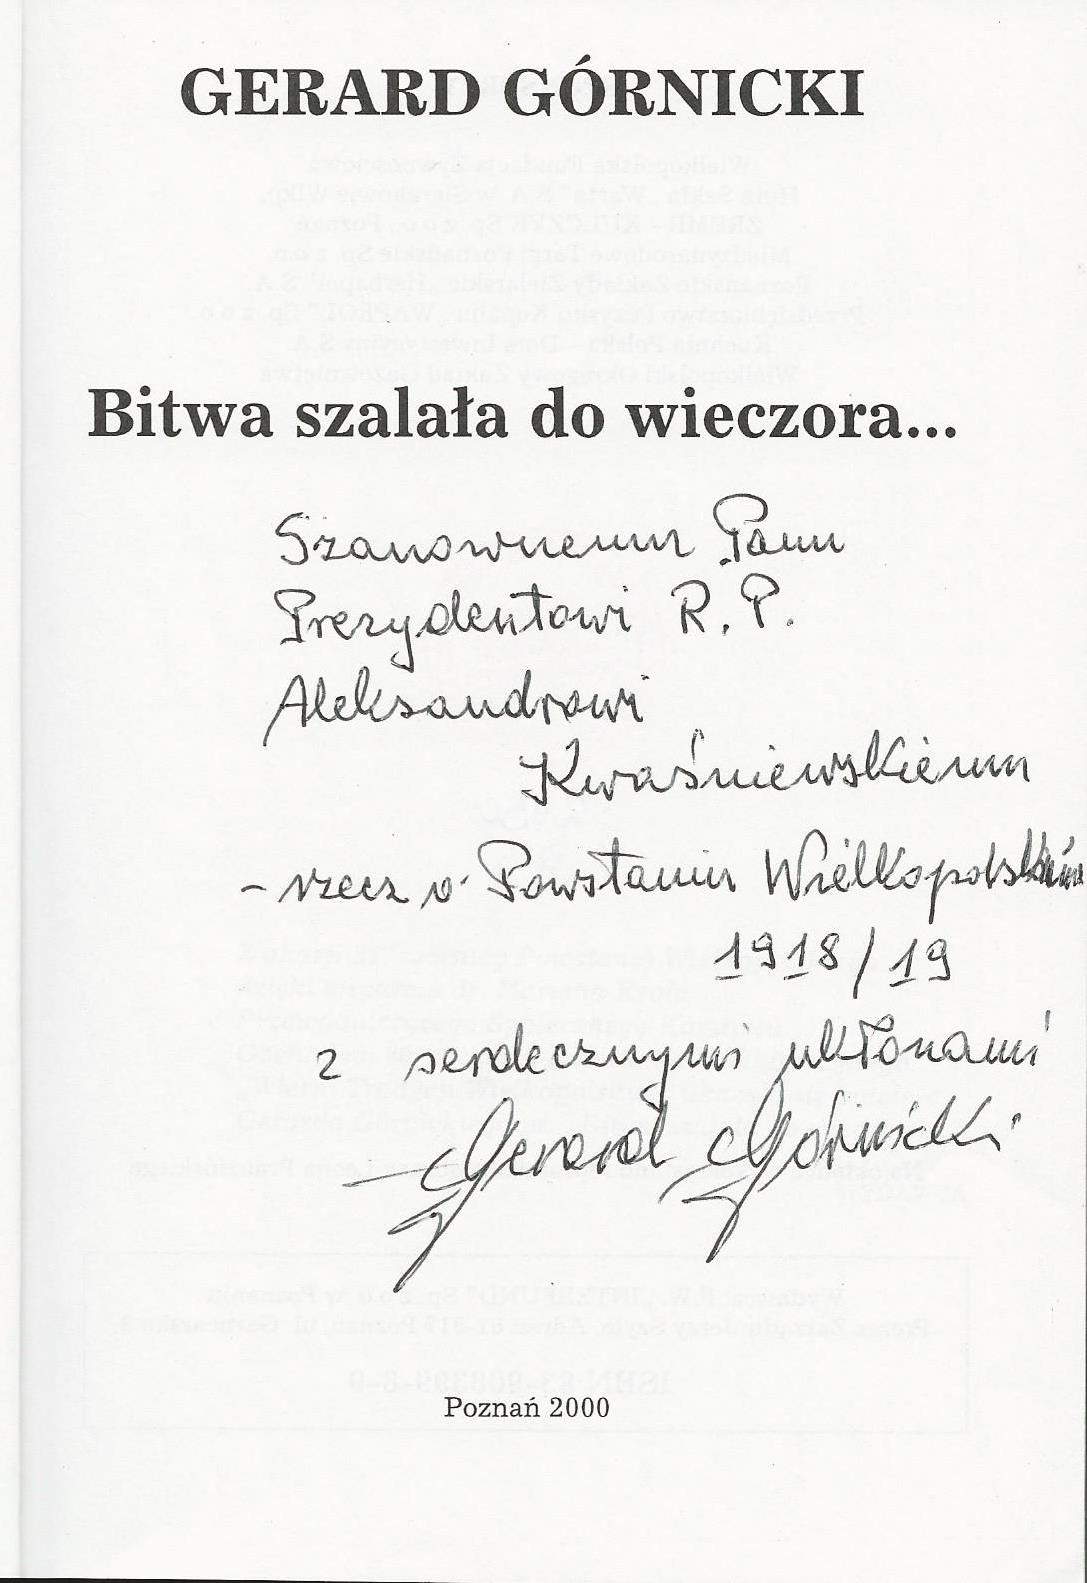 GERARD GÓRNICKI
Bitwa szalała do wieczora...
Szanownemu Panu
Prezydentowi R. P.
Aleksandrowi
Kwaśniewskiemu
– rzecz o Powstaniu Wielkopolskim
1918/19
z serdecznymi ukłonami
Gerard Górnicki
Poznań 2000